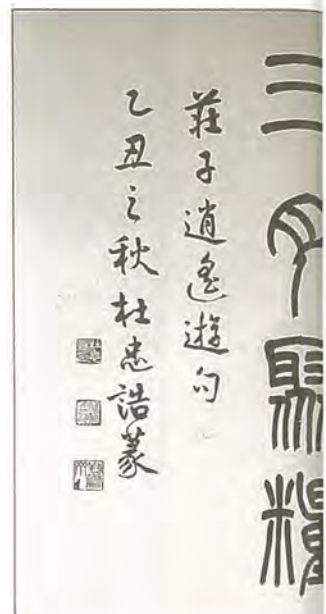 三月聚糧
莊子逍遙遊句
乙丑之秋杜忠誥篆